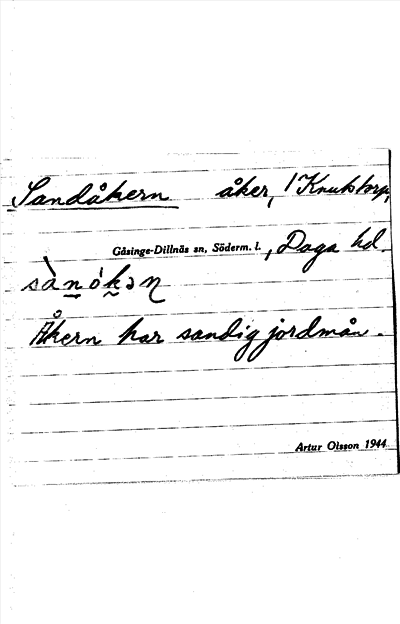 Sandåkern åker, 1 Knutstorp,
Gåsinge-Dillnäs sn, Söderm. l., Daga hd.
sànókən
Åkern har sandig jordmån.
Artur Olsson 1944